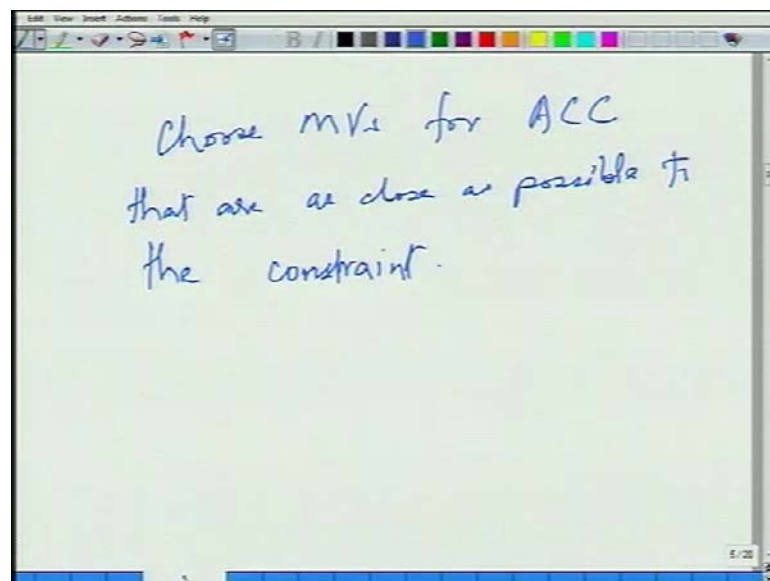 Edit View Insert Actions Tools Help
B I
Choose MVs for ACC
that are as close as possible to
the constraint.
5/20
5